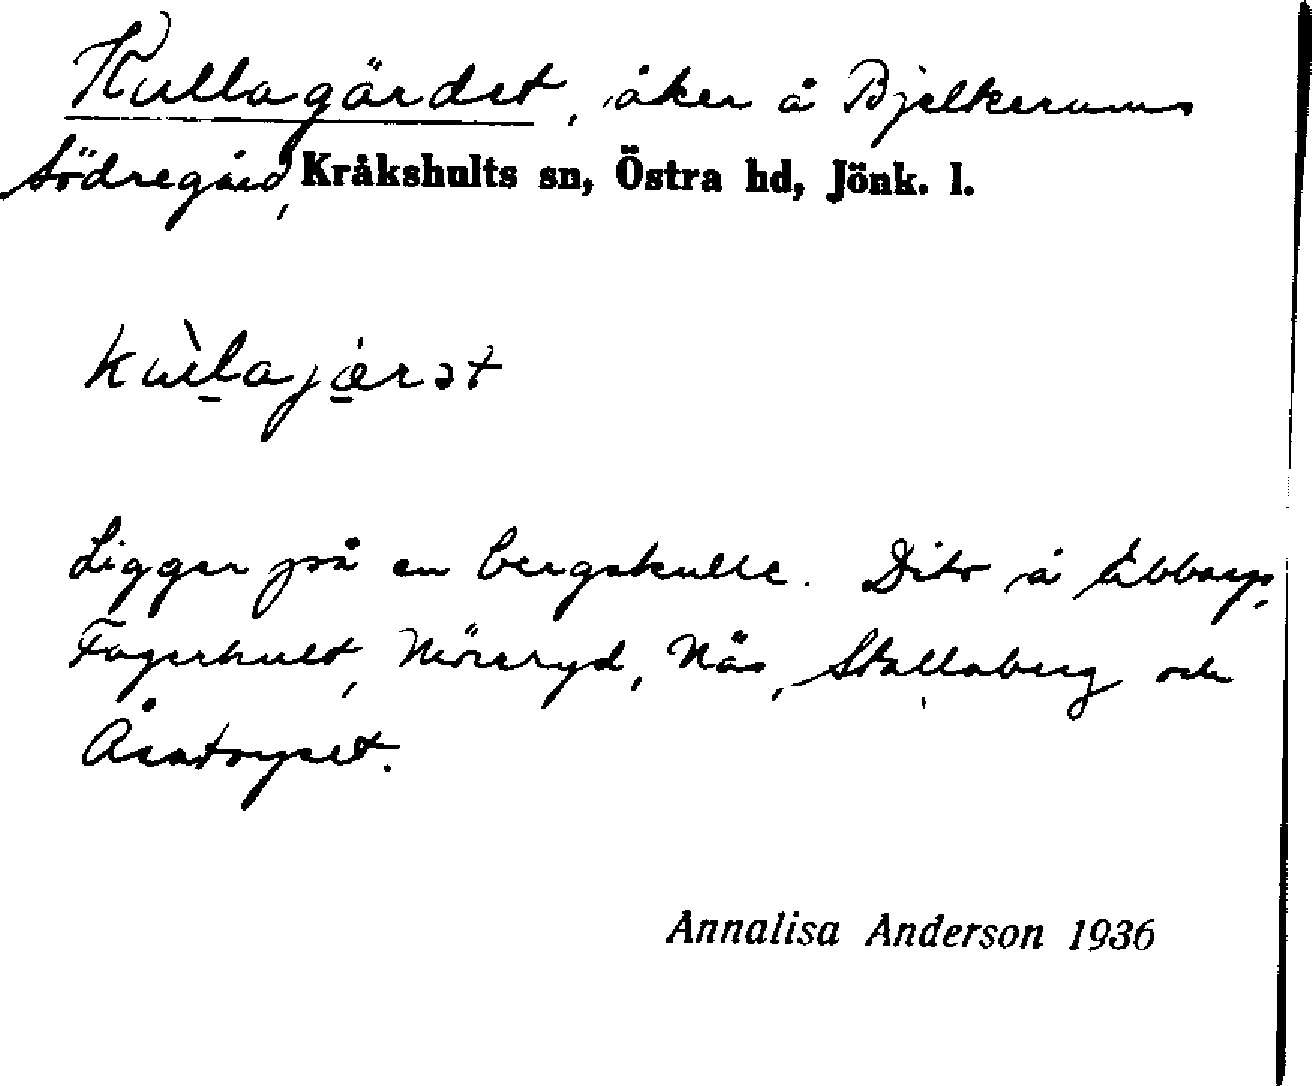 Kullagärdet, åker å Bjelkerums
Södregård, Kråkshults sn, Östra hd, Jönk. l.
kùl̲ajæ̲̀rət
Ligger på en bergskulle. Dito å Ebbarp,
Fagerhult, Mörsryd, Näs, Stallaberg och
Åsatorpet.
Annalisa Anderson 1936